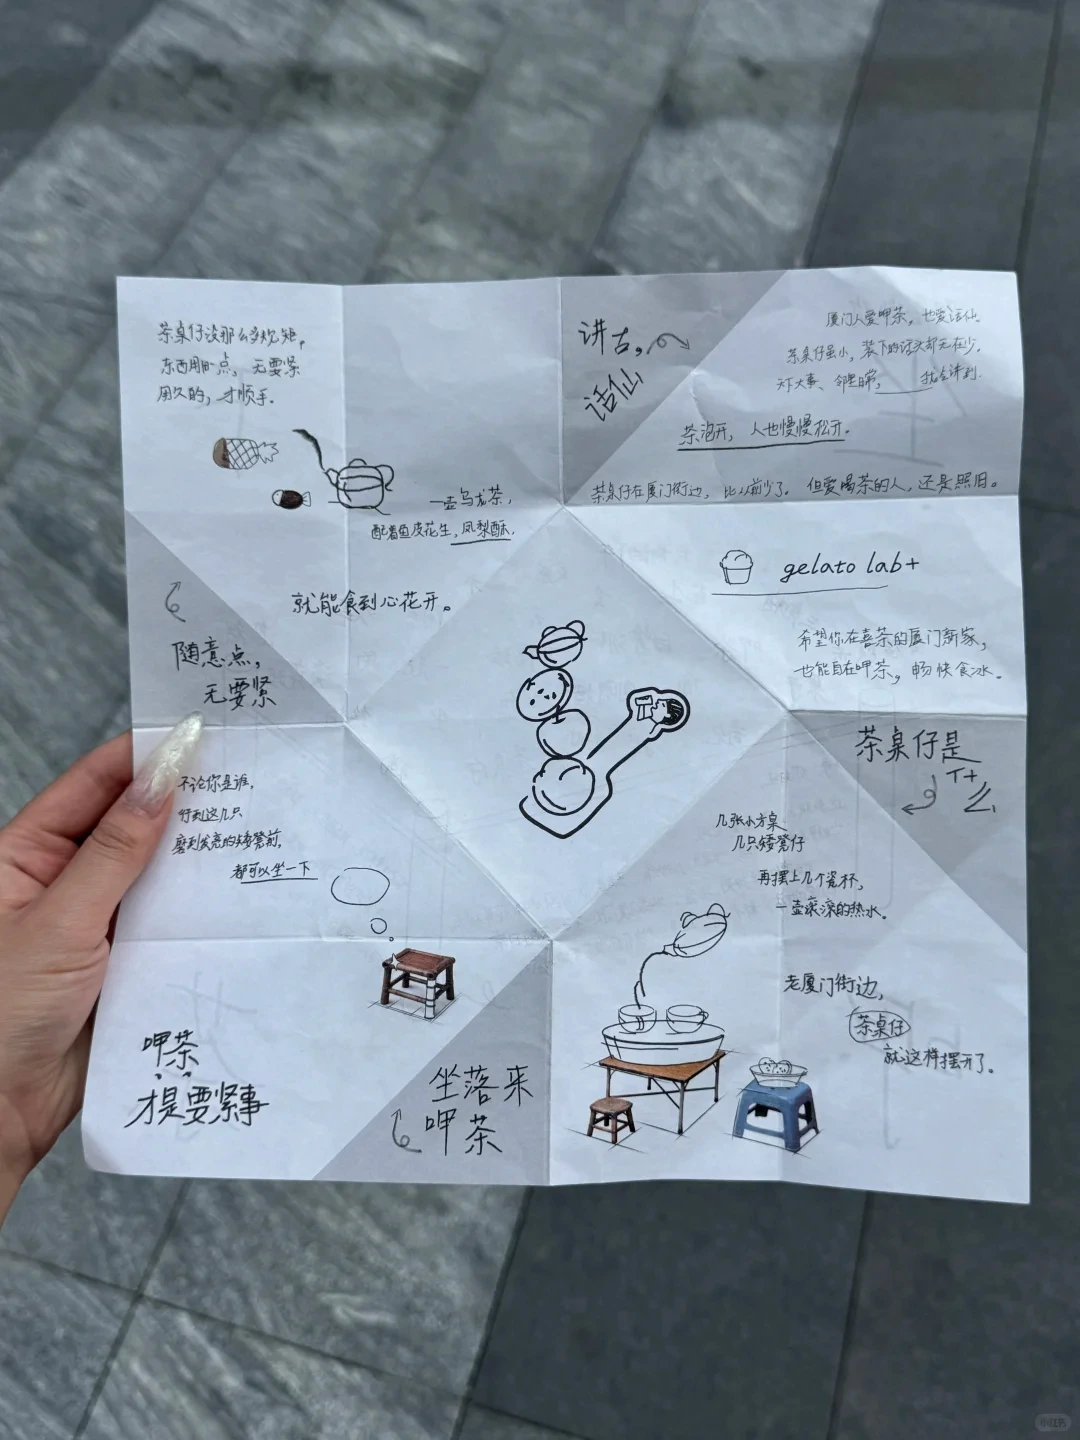 茶桌仔没那么多规矩，
东西用旧点，无要紧
用久的，才顺手。
一壶乌龙茶，
配着鱼皮花生，凤梨酥，
就能食到心花开。
随意点，
无要紧
讲古，
话仙
厦门人爱呷茶，也爱话仙。
茶桌仔虽小，装下的话头却无在少。
天下大事、邻里日常，
茶泡开，人也慢慢松开。
茶桌仔在厦门街边，比以前少了。但爱喝茶的人，还是照旧。
gelato lab+
希望你在喜茶的厦门新家，
也能自在呷茶，畅快食冰。
茶桌仔是
什么
几张小方桌
几只矮凳仔
再摆上几个瓷杯，
一壶滚滚的热水。
老厦门街边，
茶桌仔
就这样摆开了。
不论你是谁，
行到这几只
磨到发亮的矮凳前，
都可以坐一下
呷茶
才是要紧事
坐落来
呷茶
小红书